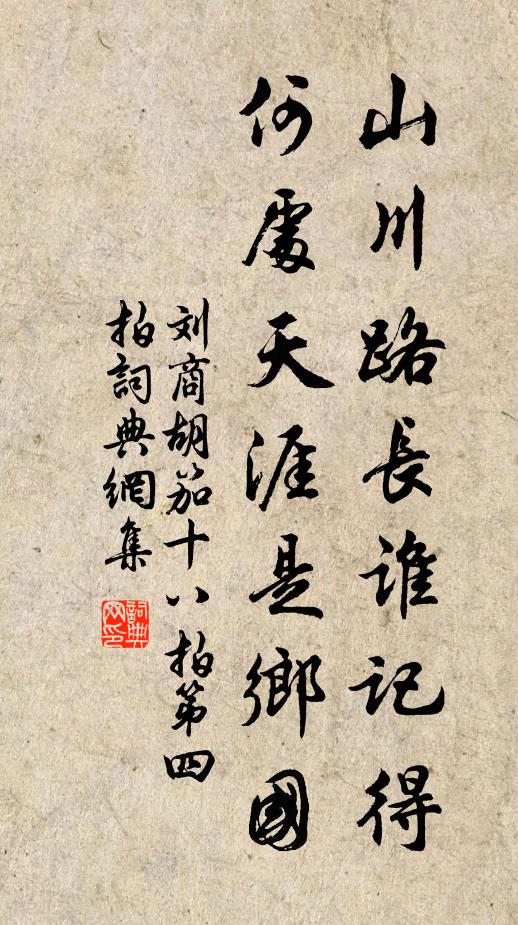 山川路長誰記得
何處天涯是鄉國
刘商胡笳十八拍第四
拍詞典網集
詞典
网印